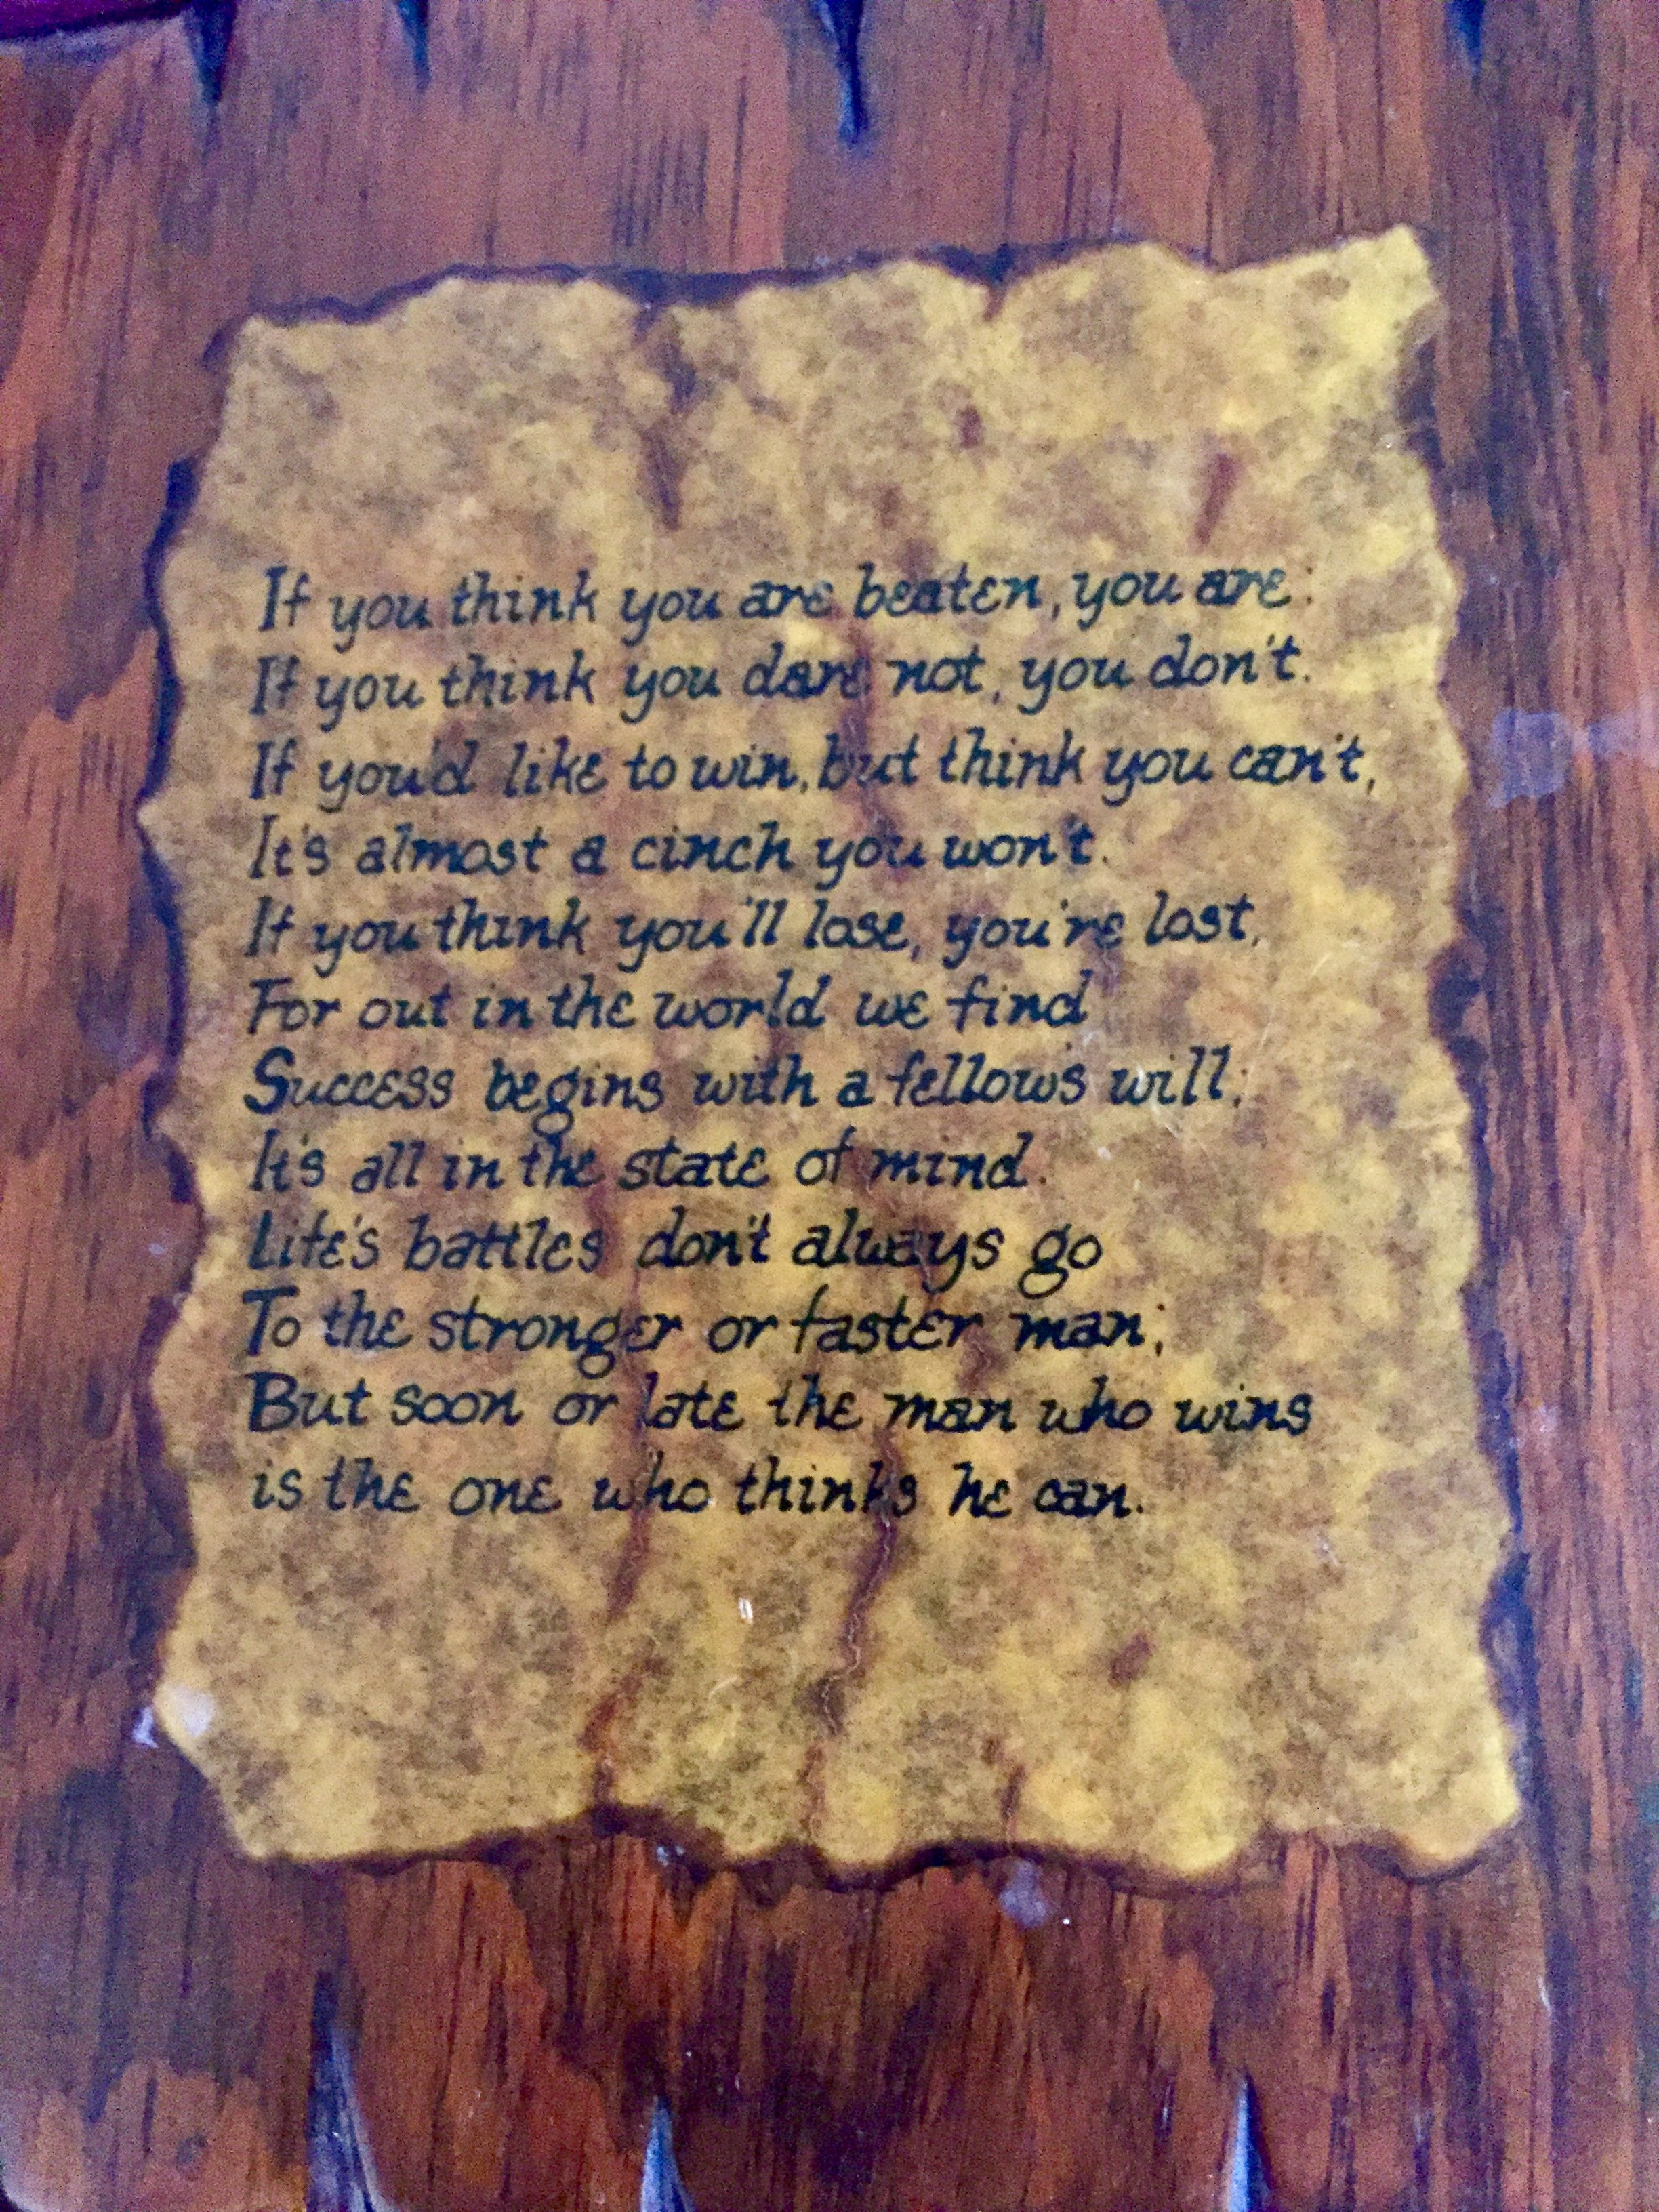 If you think you are beaten, you are;
If you think you dare not, you don't.
If you'd like to win, but think you can't,
It's almost a cinch you won't.
If you think you'll lose, you're lost,
For out in the world we find
Success begins with a fellow's will;
It's all in the state of mind.
Life's battles don't always go
To the stronger or faster man;
But soon or late the man who wins
is the one who thinks he can.